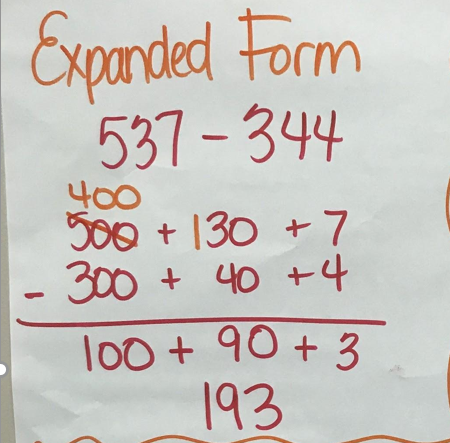 Expanded Form
537 - 344
400
500 + 130 + 7
- 300 + 40 + 4
100 + 90 + 3
193